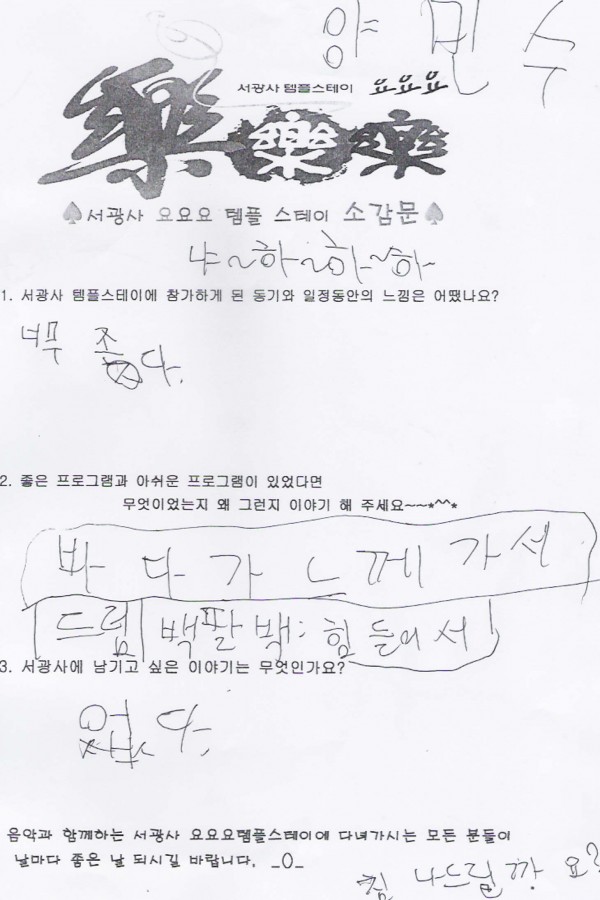 양민수
서광사 템플스테이 요요요
樂 樂 樂
♠서광사 요요요 템플 스테이 소감문♠
냐~하~하~하
1. 서광사 템플스테이에 참가하게 된 동기와 일정동안의 느낌은 어땠나요?
너무 좋다.
2. 좋은 프로그램과 아쉬운 프로그램이 있었다면
무엇이었는지 왜 그런지 이야기 해 주세요~~*^^*
바다가 느께가서
드럼 백팔배: 힘들어서
3. 서광사에 남기고 싶은 이야기는 무엇인가요?
없다.
음악과 함께하는 서광사 요요요템플스테이에 다녀가시는 모든 분들이
날마다 좋은 날 되시길 바랍니다. _O_
나드릴까 요?